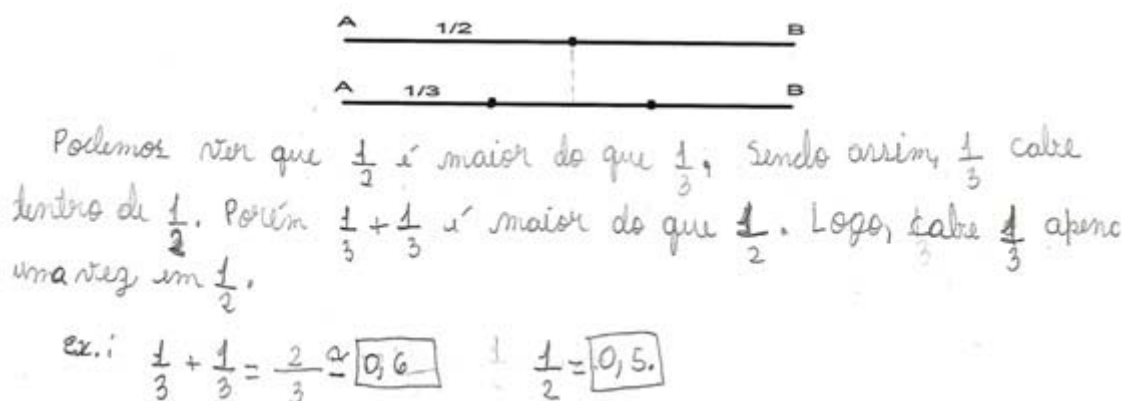 A 1/2 B
A 1/3 B
Podemos ver que 1/2 é maior do que 1/3, sendo assim, 1/3 cabe
dentro de 1/2. Porém 1/3 + 1/3 é maior do que 1/2. Logo, cabe 1/3 apena
uma vez em 1/2.
ex.: 1/3 + 1/3 = 2/3 ≅ 0,6 1/2 = 0,5.